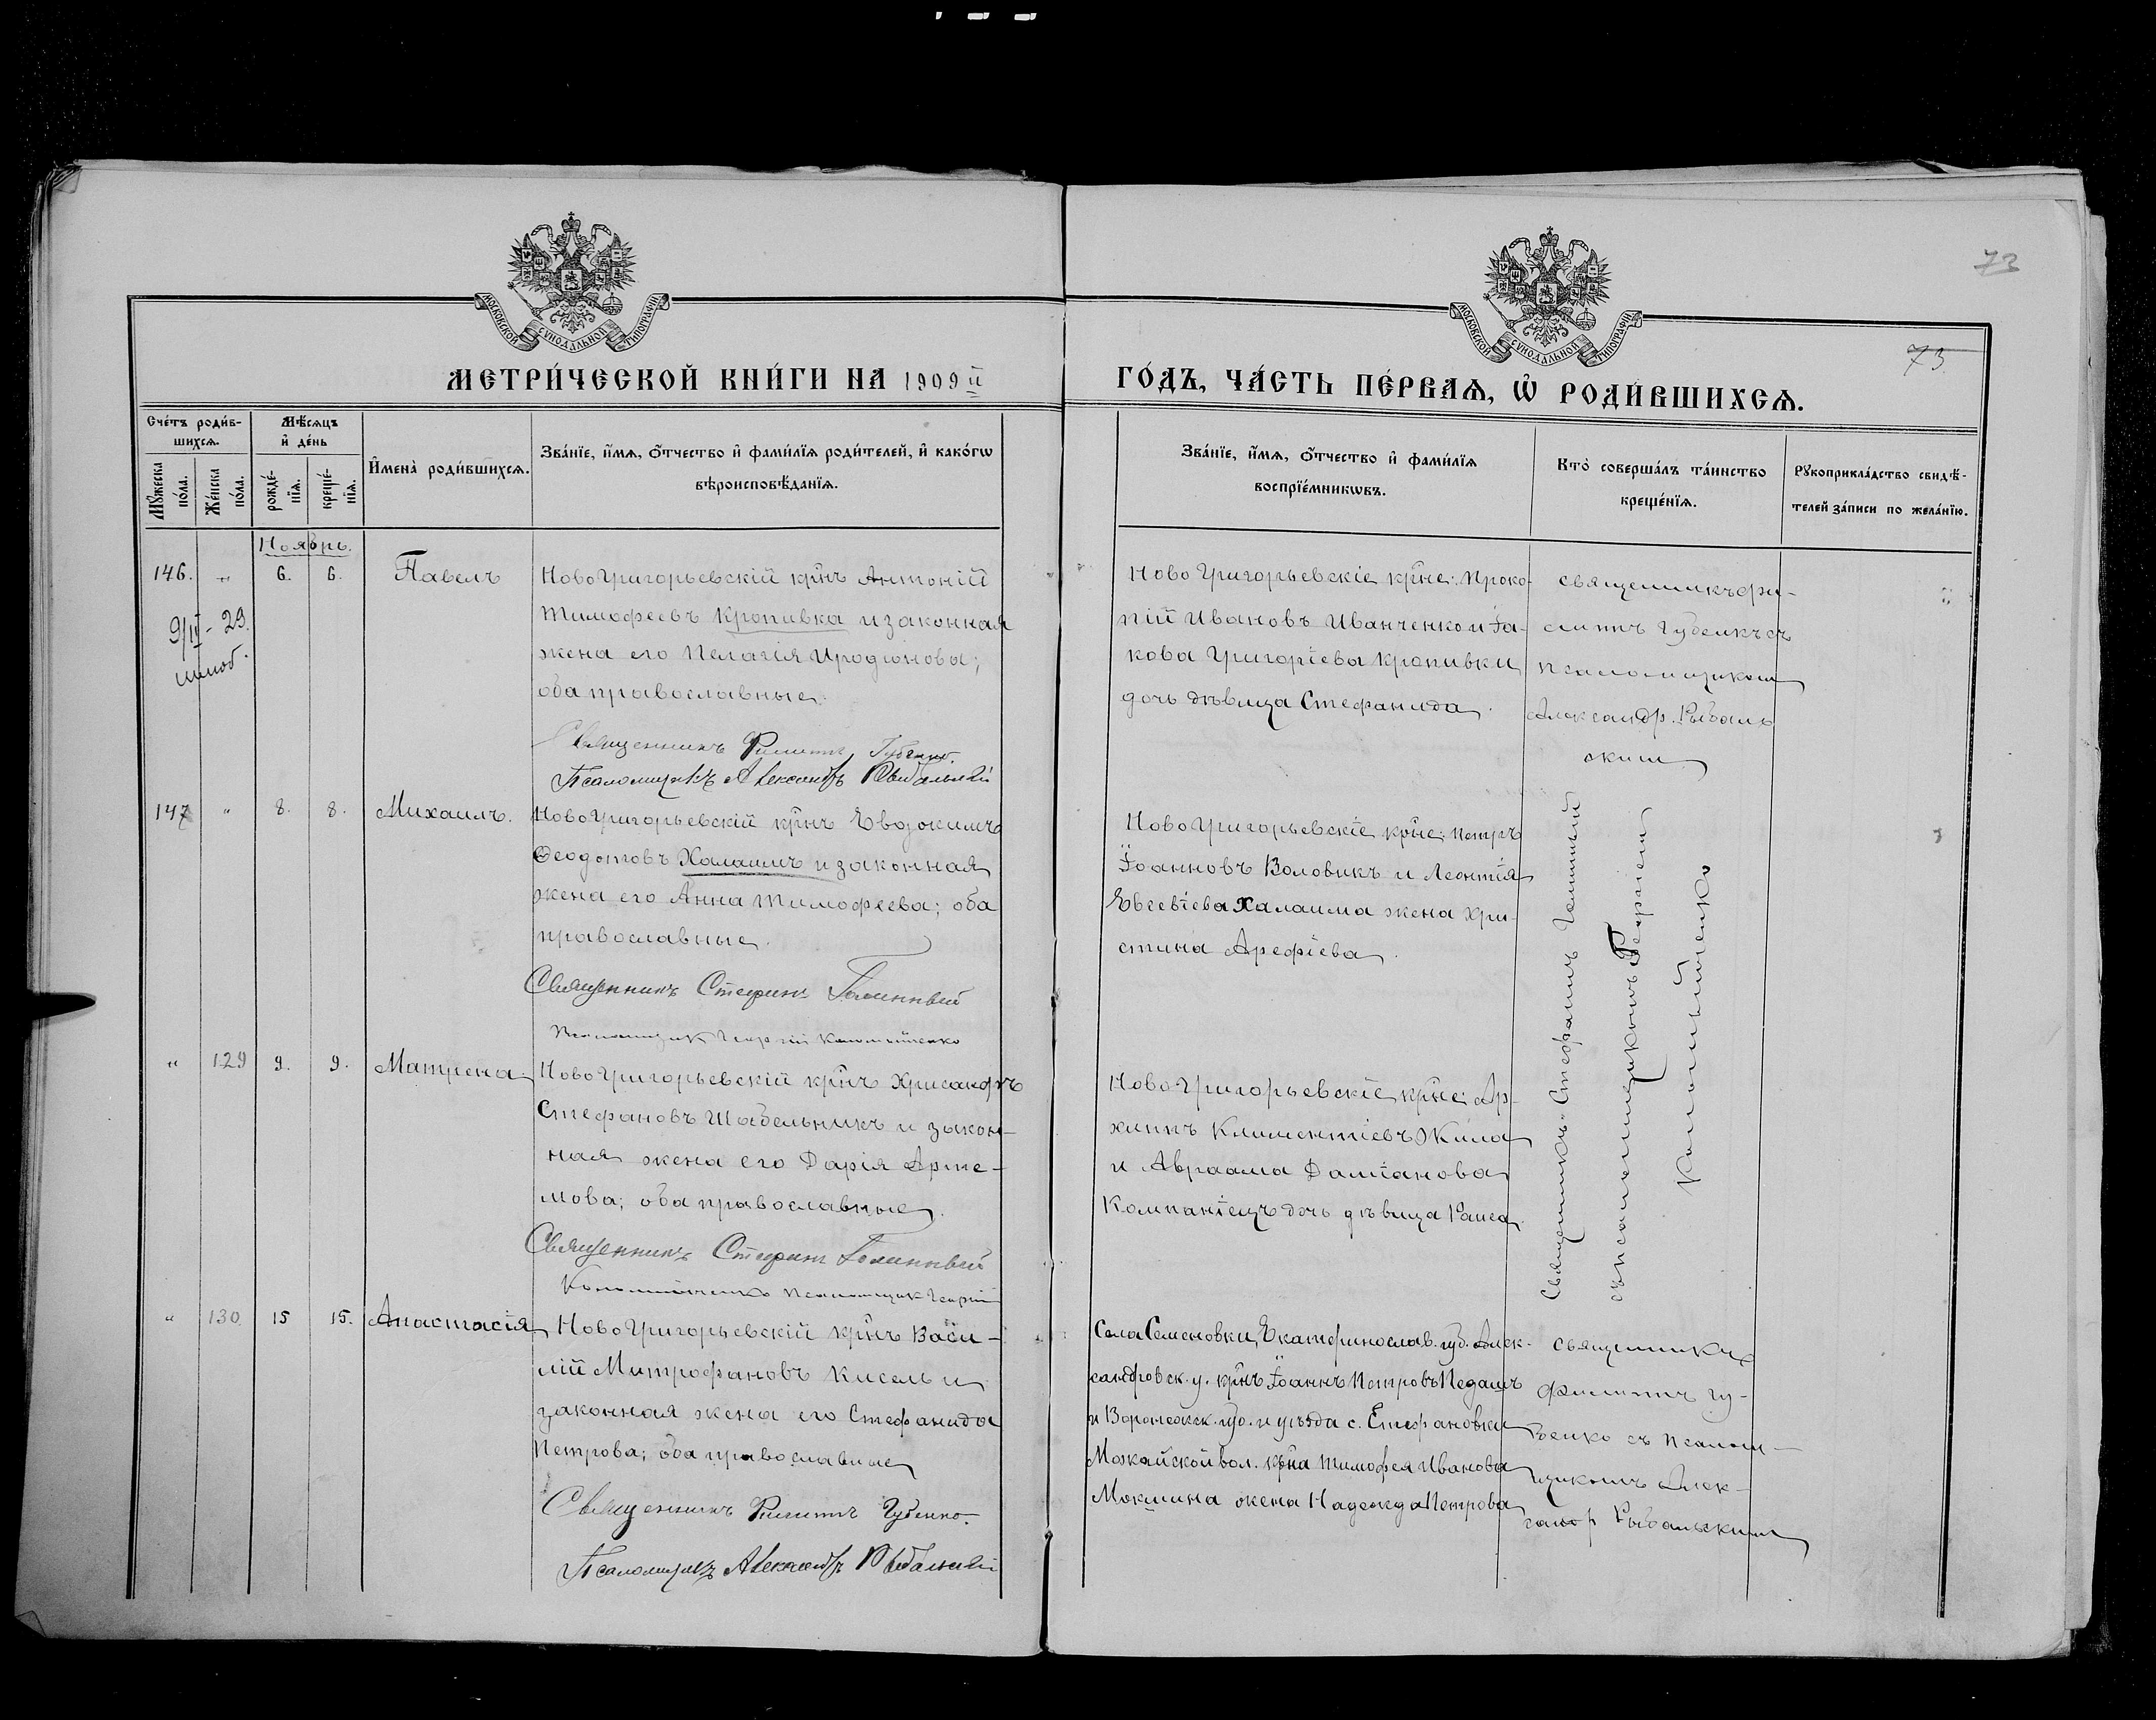 73
73
МОСКОВСКОЙ СѴНОДАЛЬНОЙ ТИПОГРАФІИ
МОСКОВСКОЙ СѴНОДАЛЬНОЙ ТИПОГРАФІИ
МЕТРИ́ЧЕСКОЙ КНИ́ГИ НА 1909 й
ГО́ДЪ, ЧА́СТЬ ПЕ́РВАѦ, Ѡ҆ РОДИ́ВШИХСѦ.
Сче́тъ роди́в-
шихсѧ.
Мѣ́сѧцъ
и҆ де́нь
Мꙋ́жеска
по́ла.
Же́нска
по́ла.
рожде́-
нїѧ.
креще́-
нїѧ.
И҆мена̀ роди́вшихсѧ.
Зва́нїе, и҆́мѧ, о҆́тчество и҆ фами́лїѧ роди́телей, и҆ како́гѡ
вѣроисповѣ́данїѧ.
Зва́нїе, и҆́мѧ, о҆́тчество и҆ фами́лїѧ
воспрїе́мникѡвъ.
Кто̀ соверша́лъ та́инство
креще́нїѧ.
Рꙋкоприкла́дство свидѣ́-
телей за́писи по жела́нїю.
Ноябрь.
146. " 6. 6. Павелъ
НовоГригорьевскій крнъ Антоній
Тимофеевъ Кропивка и законная
жена его Пелагія Иродіонова;
оба православные.
9/II - 29.
Священникъ Филиппъ Губенко.
Псаломщикъ Александръ Рыбальскій
НовоГригорьевскіе крне: Проко-
пій Ивановъ Иванченко и Іа-
кова Григоріева Кропивки
дочь дѣвица Стефанида.
священникъ Фи-
липпъ Губенко съ
псаломщикомъ
Александр. Рыбаль
скимъ
147 " 8. 8. Михаилъ.
НовоГригорьевскій крнъ Евдокимъ
Ѳеодотовъ Халаимъ и законная
жена его Анна Тимофеева; оба
православные.
Священникъ Стефанъ Голинный
Псаломщикъ Георгій Коломійченко
НовоГригорьевскіе крне: Петръ
Іоанновъ Воловикъ и Леонтія
Евсевіева Халаима жена Хри-
стина Арефіева.
Священникъ Стефанъ Голинный
съ псаломщикомъ Георгіемъ
Коломыйченко
" 129 9. 9. Матрена
НовоГригорьевскій крнъ Хрисанфъ
Стефановъ Шабельникъ и закон-
ная жена его Дарія Арте-
мова; оба православные.
Священникъ Стефанъ Голинный
Коломійченко псаломщик Георгій
НовоГригорьевскіе крне: Ар-
хиппъ Климентіевъ Жила
и Авраама Даміанова
Компаніецъ дочь дѣвица Раиса.
" 130. 15 15. Анастасія
НовоГригорьевскій крнъ Васи-
лій Митрофановъ Кисель и
законная жена его Стефанида
Петрова; оба православные
Священникъ Филиппъ Губенко.
Псаломщикъ Александръ Рыбальскій
Села Семеновки, Екатеринослав. губ. Алек-
сандровск. у. крнъ Іоаннъ Петровъ Педашъ
и Воронежск. губ. и уѣзда с. Стефановки
Можайской вол. крна Тимофея Иванова
Мокшина жена Надежда Петрова
священникъ
Филиппъ Гу-
бенко съ псалом-
щикомъ Алек-
сандр Рыбальскимъ